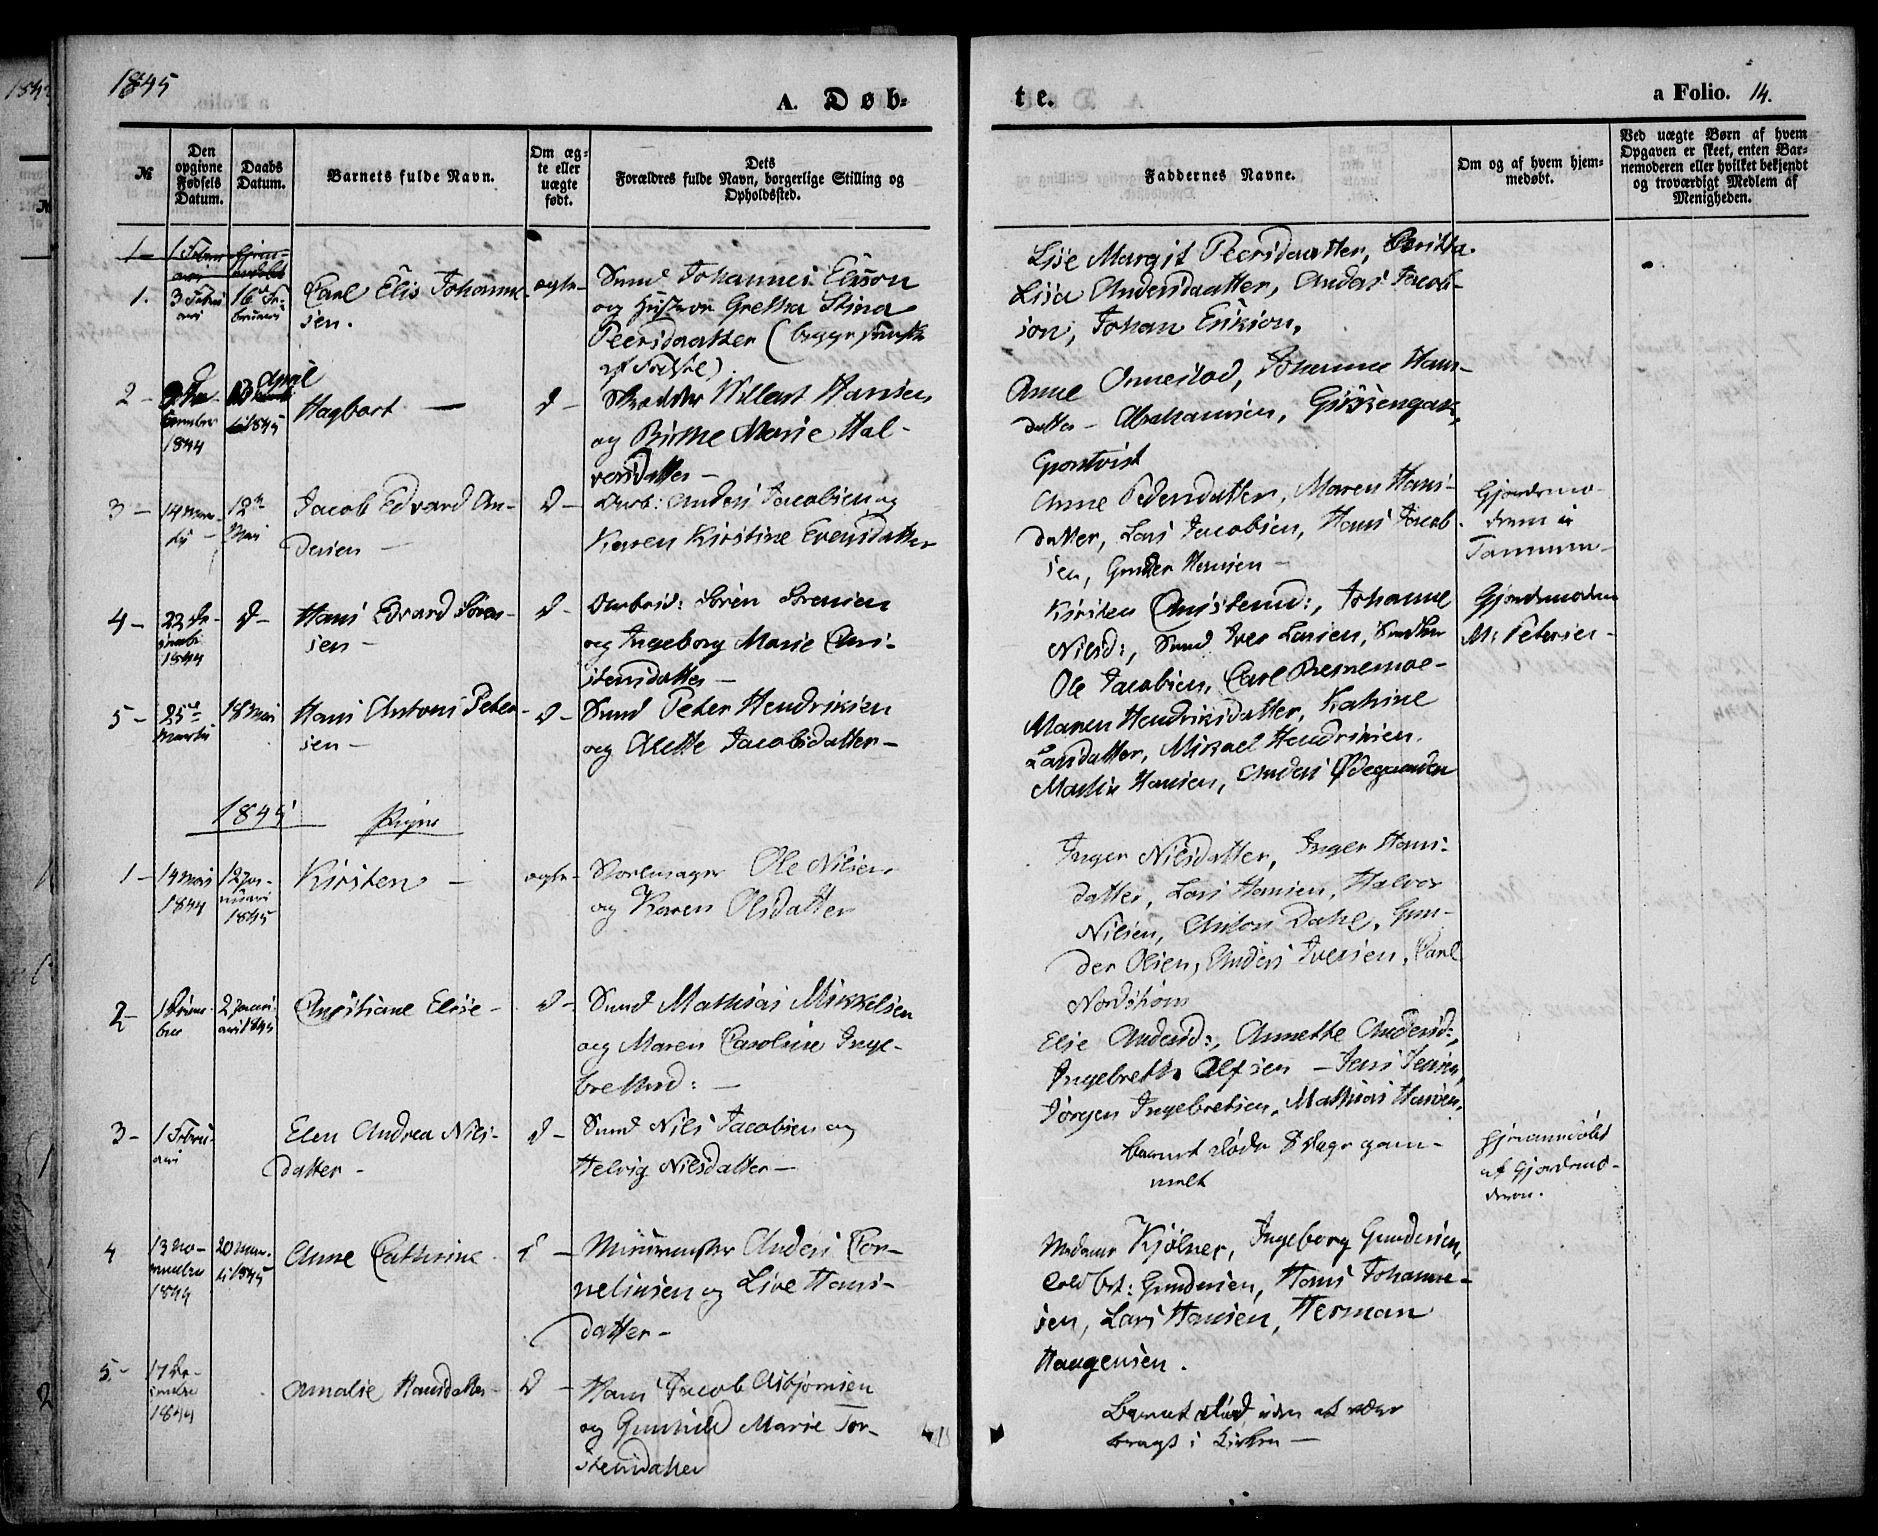 1845
A. Døb-
te.
a Folio. 14.
№
Den opgivne Fødsels Datum.
Daabs Datum.
Barnets fulde Navn.
Om ægte eller uægte født.
Dets
Forældres fulde Navn, borgerlige Stilling og
Opholdssted.
Faddernes Navne.
Om og af hvem hjem-
medøbt.
Ved uægte Børn af hvem
Opgaven er skeet, enten Bar-
nemoderen eller hvilket bekjendt
og troværdigt Medlem af
Menigheden.
1.
3 Febru
ari
16 Fe-
bruari
Carl Elis Johanne-
sen.
ægte
Smed Johannes Elisson
og Hustroe Gretha Stina
Peersdaatter (begge svensk
af Fødsel)
Lise Margit Peersdaatter,
Lisa Andersdaatter, Anders Jacob-
son, Johan Erikson.
2 -
1844
April
1845
Hagbart -
d -
Willert Hansen
og Birthe Marie Hal-
vorsdatter -
Anne Onnestad, Johanne Hans-
datter - Abrahamsen,
3 -
14 Mar-
tii
18de
Mai
Jacob Edvard An-
dersen -
d -
Arb: Anders Jacobsen og
Karen Kirstine Evensdatter
Anne Pedersdatter, Maren Hans-
datter, Lars Jacobsen, Hans Jacob
sen, Gunder Hansen -
Gjordemo-
deren
4 -
22 De-
cembr
1844
d -
Hans Edvard Søren-
sen -
d -
Arbeid: Søren Sørensen
og Ingeborg Marie Chri-
stensdatter -
Kirsten Christensd:, Johanne
Nilsd:, Smed Iver Larsen,
Ole Jacobsen, Carl
Gjordemoderen
M: Petersen -
5 -
25de
Martii
18 Mai
Hans Anton Peter-
sen -
d -
Smed Peter Hendriksen
og Alette Jacobsdatter -
Maren Hendriksdatter, Katrine
Larsdatter, Mikael Hendriksen.
Martin Hansen, Anders Ødegaarden
1845 Pigne
1 -
14 Mai
1844
12 Jan-
nuari
1845
Kirsten -
ægte -
Ole Nilsen
og Karen Olsdatter
Inger Nilsdatter, Inger Hans-
datter, Lars Hansen, Halvor
Nilsen, Anton Dahl, Gun-
der Olsen, Anders Iversen, Carl
Nordstrøm
2 -
2 Janu-
ari 1845
Christiane Elise -
d -
Smed Mathias Mikkelsen
og Maren Caroline Inge-
brethsd: -
Elise Andersd:, Annethe Andersd:,
Ingebreth Alfsen - Jens Jensen,
Jørgen Ingebretsen, Mathias Hansen,
3 -
1 Febru-
ari
Elen Andrea Nils-
datter -
d -
Smed Nils Jacobsen og
Helvig Nilsdatter -
Barnet døde 8 dage gam-
melt
hjemmedøbt
af Gjordemo-
deren.
4
13 No-
vembr
1844
20 Mar-
tii 1845
Anne Cathrine
d -
Muurmester Anders Cor-
neliusen og Live Hans-
datter -
Madame Kjølner, Ingeborg Gundersen,
Gundersen, Hans Johanne-
sen, Lars Hansen, Herman
Haugensen.
5 -
17 De-
cembr
1844
Amalie Hansdatter -
d -
Hans Jacob Asbjørnsen
og Gunhild Marie Tor-
stensdatter
Barnet død uden at være
bragt i Kirken -